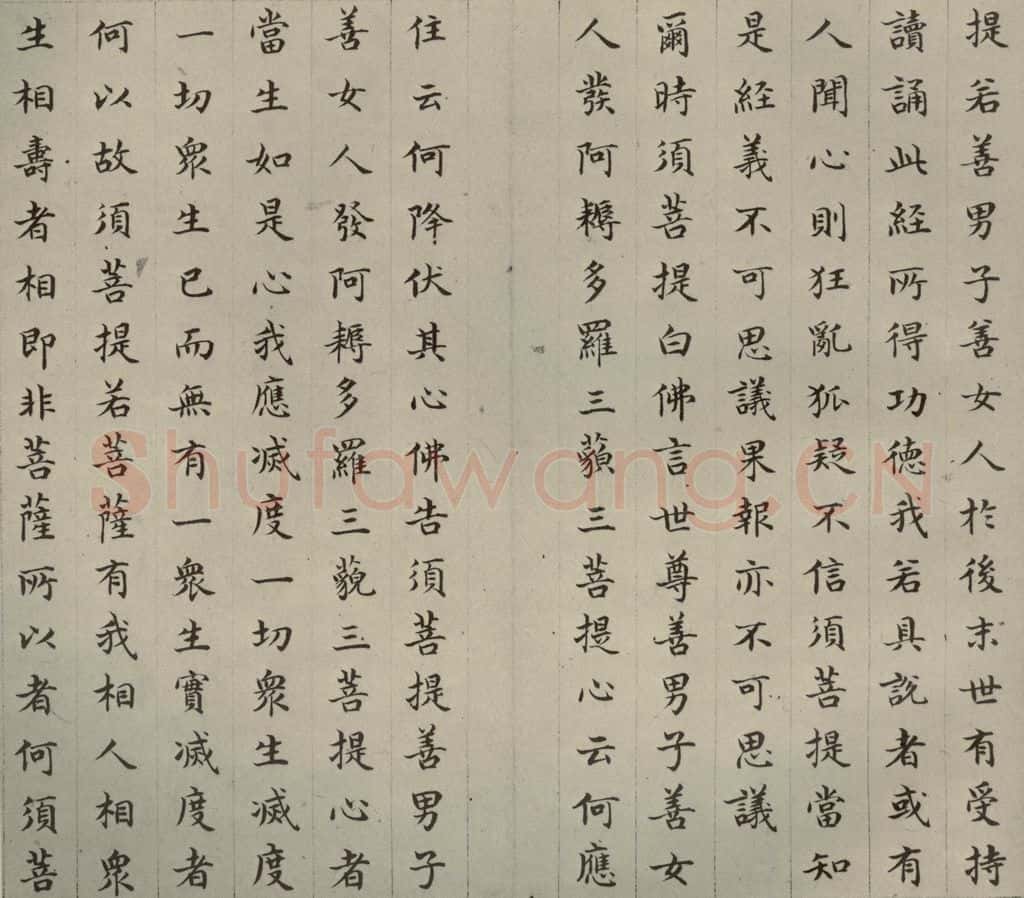 提若善男子善女人於後末世有受持
讀誦此経所得功德我若具說者或有
人聞心則狂亂狐疑不信須菩提當知
是経義不可思議果報亦不可思議
爾時須菩提白佛言世尊善男子善女
人發阿耨多羅三藐三菩提心云何應
住云何降伏其心佛告須菩提善男子
善女人發阿耨多羅三藐三菩提心者
當生如是心我應滅度一切衆生滅度
一切衆生已而無有一衆生實滅度者
何以故須菩提若菩薩有我相人相衆
生相壽者相即非菩薩所以者何須菩
Shufawang.CN